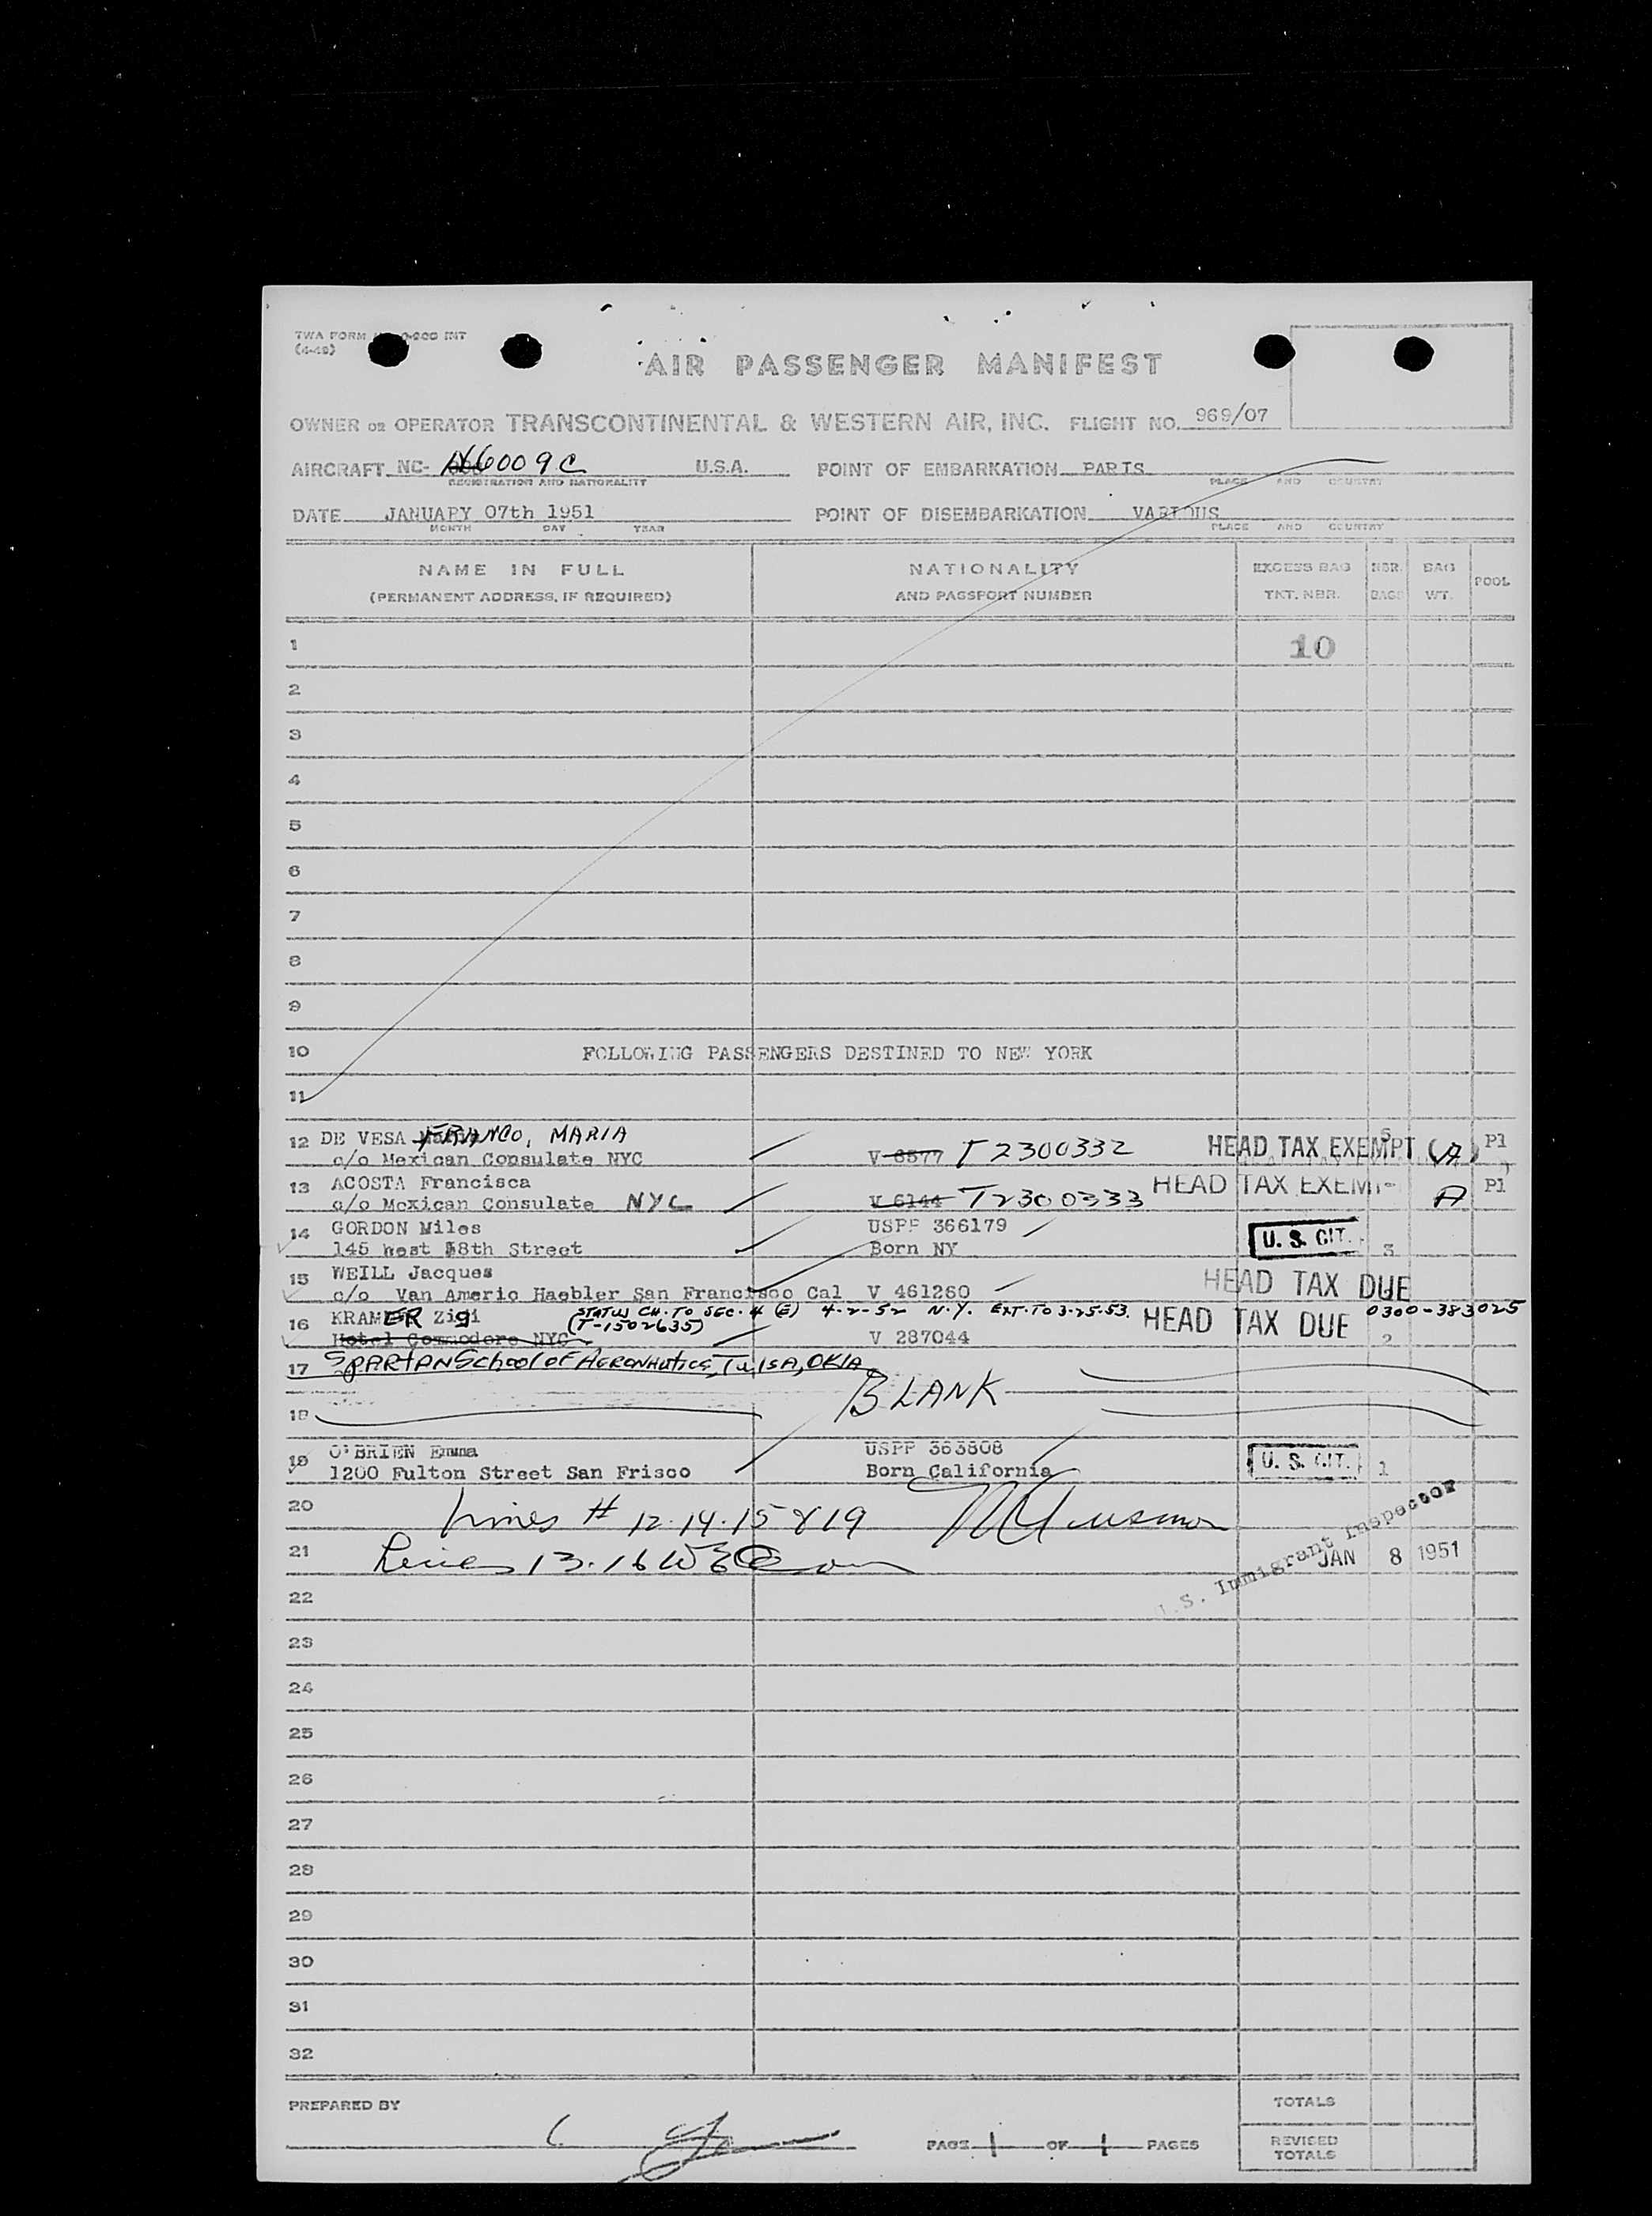 TWA FORM
(4-49)
AIR PASSENGER MANIFEST
OWNER OR OPERATOR TRANSCONTINENTAL & WESTERN AIR, INC. FLIGHT NO. 969/07
AIRCRAFT NC- N6009C U.S.A. POINT OF EMBARKATION PARIS
REGISTRATION AND NATIONALITY PLACE AND COUNTRY
DATE JANUARY 07th 1951 POINT OF DISEMBARKATION VARIOUS
MONTH DAY YEAR PLACE AND COUNTRY
NAME IN FULL NATIONALITY EXCESS BAG NBR. BAG POOL
(PERMANENT ADDRESS, IF REQUIRED) AND PASSPORT NUMBER TKT. NBR. BAGS WT.
1 10
2
3
4
5
6
7
8
9
10 FOLLOWING PASSENGERS DESTINED TO NEW YORK
11
12 DE VESA FRANCO, MARIA HEAD TAX EXEMPT (A) P1
c/o Mexican Consulate NYC V 6577 T2300332
13 ACOSTA Francisca HEAD TAX EXEMP A P1
c/o Mexican Consulate NYC V 6144 T2300333
14 GORDON Miles USPP 366179 U. S. CIT.
145 West 58th Street Born NY 3
15 WEILL Jacques HEAD TAX DUE
c/o Van Americ Haebler San Francisco Cal V 461260
16 KRAMER Zigi STATUS CH. TO SEC. 4 (E) 4-2-52 N.Y. EXT. TO 3-25-53. HEAD TAX DUE 0300-383025
(T-1502635)
Hotel Commodore NYC V 287044 2
17 SPARTAN School of AERONAUTICS, TulSA, OKlA
BLANK
18
19 O'BRIEN Emma USPP 363808 U. S. CIT. 1
1200 Fulton Street San Frisco Born California
20 Lines # 12.14.15 & 19
U.S. Immigrant Inspector
21 Lines 13.16 JAN 8 1951
22
23
24
25
26
27
28
29
30
31
32
PREPARED BY TOTALS
PAGE 1 OF 1 PAGES REVISED
TOTALS